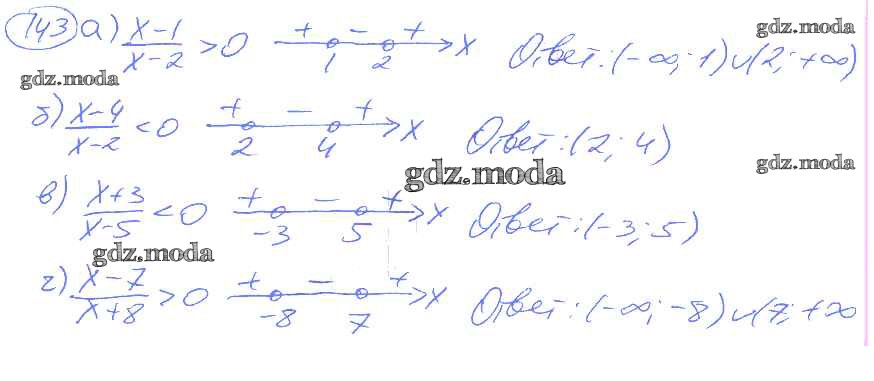 143 а) x-1/x-2 > 0 + - + 1 2 x Ответ: (-∞; 1) ∪ (2; +∞)
gdz.moda
gdz.moda
б) x-4/x-2 < 0 + - + 2 4 x Ответ: (2; 4)
gdz.moda
gdz.moda
в) x+3/x-5 < 0 + - + -3 5 x Ответ: (-3; 5)
gdz.moda
г) x-7/x+8 > 0 + - + -8 7 x Ответ: (-∞; -8) ∪ (7; +∞